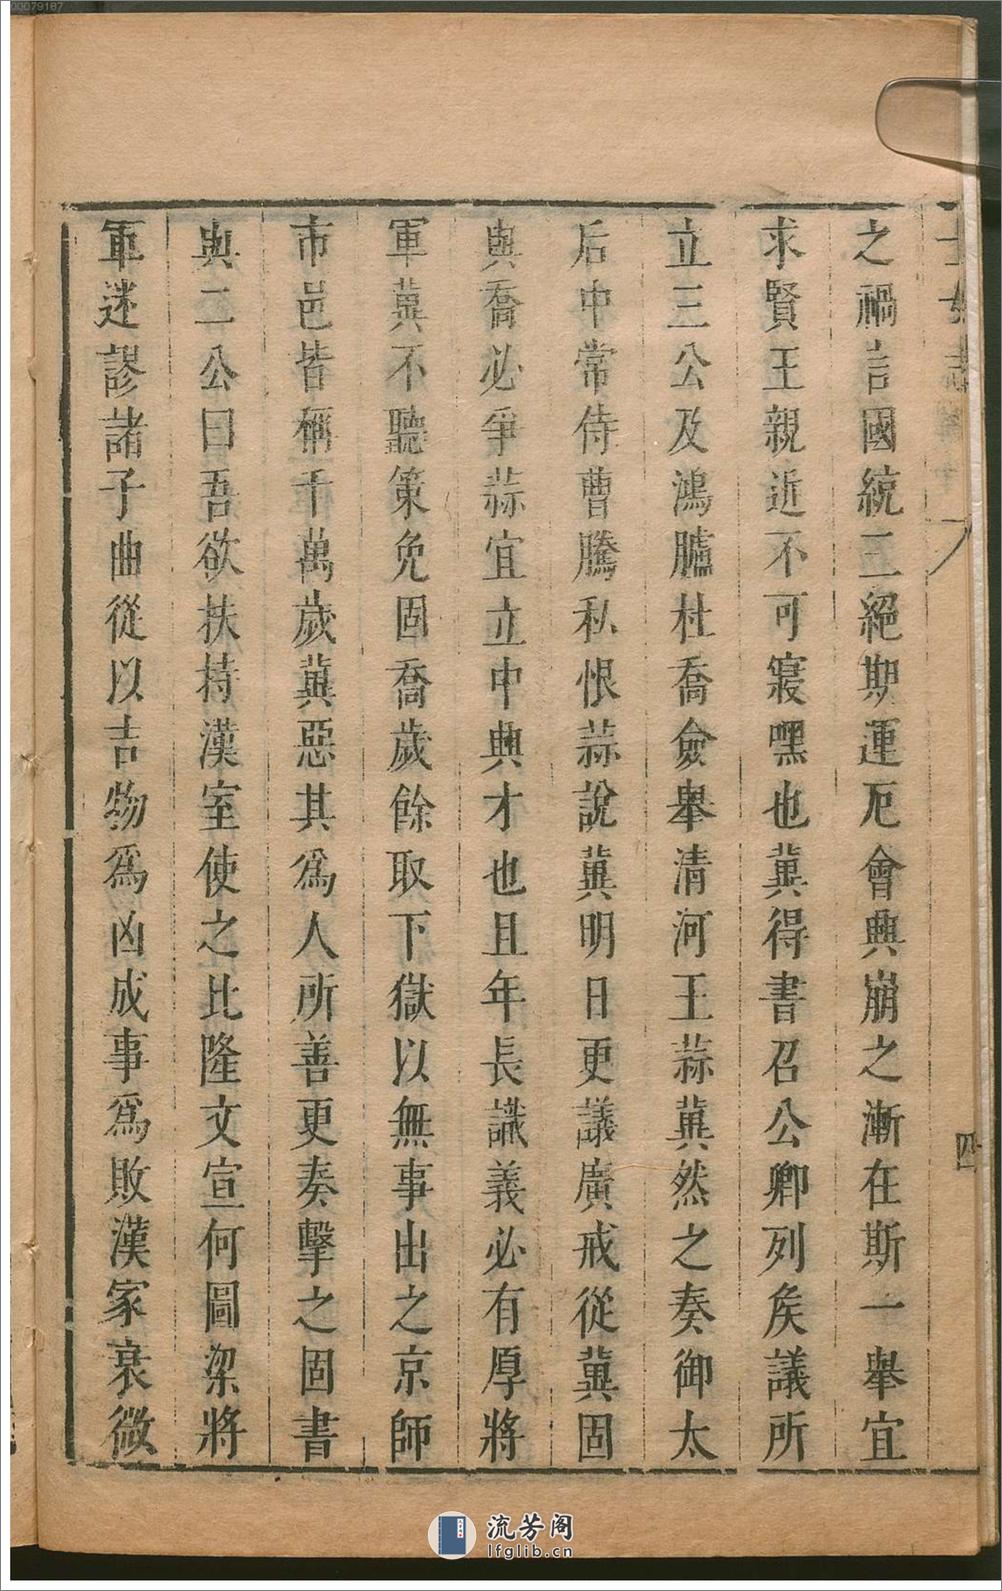 之禍言國統三絕期運厄會興崩之漸在斯一舉宜
求賢王親近不可寢嘿也冀得書召公卿列矦議所
立三公及鴻臚杜喬僉舉清河王蒜冀然之奏御太
后中常侍曹騰私恨蒜說冀明日更議廣戒從冀固
與喬必爭蒜宜立中興才也且年長識義必有厚將
軍冀不聽策免固喬歲餘取下獄以無事出之京師
市邑皆稱千萬歲冀惡其爲人所善更奏擊之固書
與二公曰吾欲扶持漢室使之比隆文宣何圖梁將
軍迷謬諸子曲從以吉物爲凶成事爲敗漢家衰微
士女志
四
00079187
流芳阁
lfglib.cn